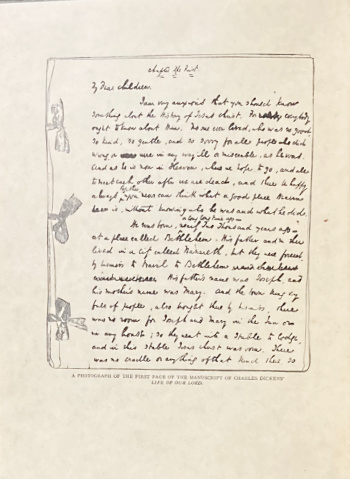 Chapter the First.
My Dear Children.
I am very anxious that you should know
something about the History of Jesus Christ. For everybody
ought to know about Him. No one ever lived, who was so good,
so kind, so gentle, and so sorry for all people who did
wrong, or were in any way ill or miserable, as he was.
And as he is now in Heaven, where we hope to go, and all
to meet each other after we are dead, and there be happy
always together, you never can think what a good place Heaven
is, without knowing who he was and what he did.
a long long time ago
He was born, nearly Two Thousand years ago
at a place called Bethlehem. His father and mother
lived in a city called Nazareth, but they were forced,
by business to travel to Bethlehem.
His father's name was Joseph, and
his mother's name was Mary. And the town being very
full of people, also brought there by business, there
was no room for Joseph and Mary in the Inn or
in any house; so they went into a Stable to lodge,
and in this stable Jesus Christ was born. There
was no cradle or anything of that kind there, so
A PHOTOGRAPH OF THE FIRST PAGE OF THE MANUSCRIPT OF CHARLES DICKENS'
LIFE OF OUR LORD.